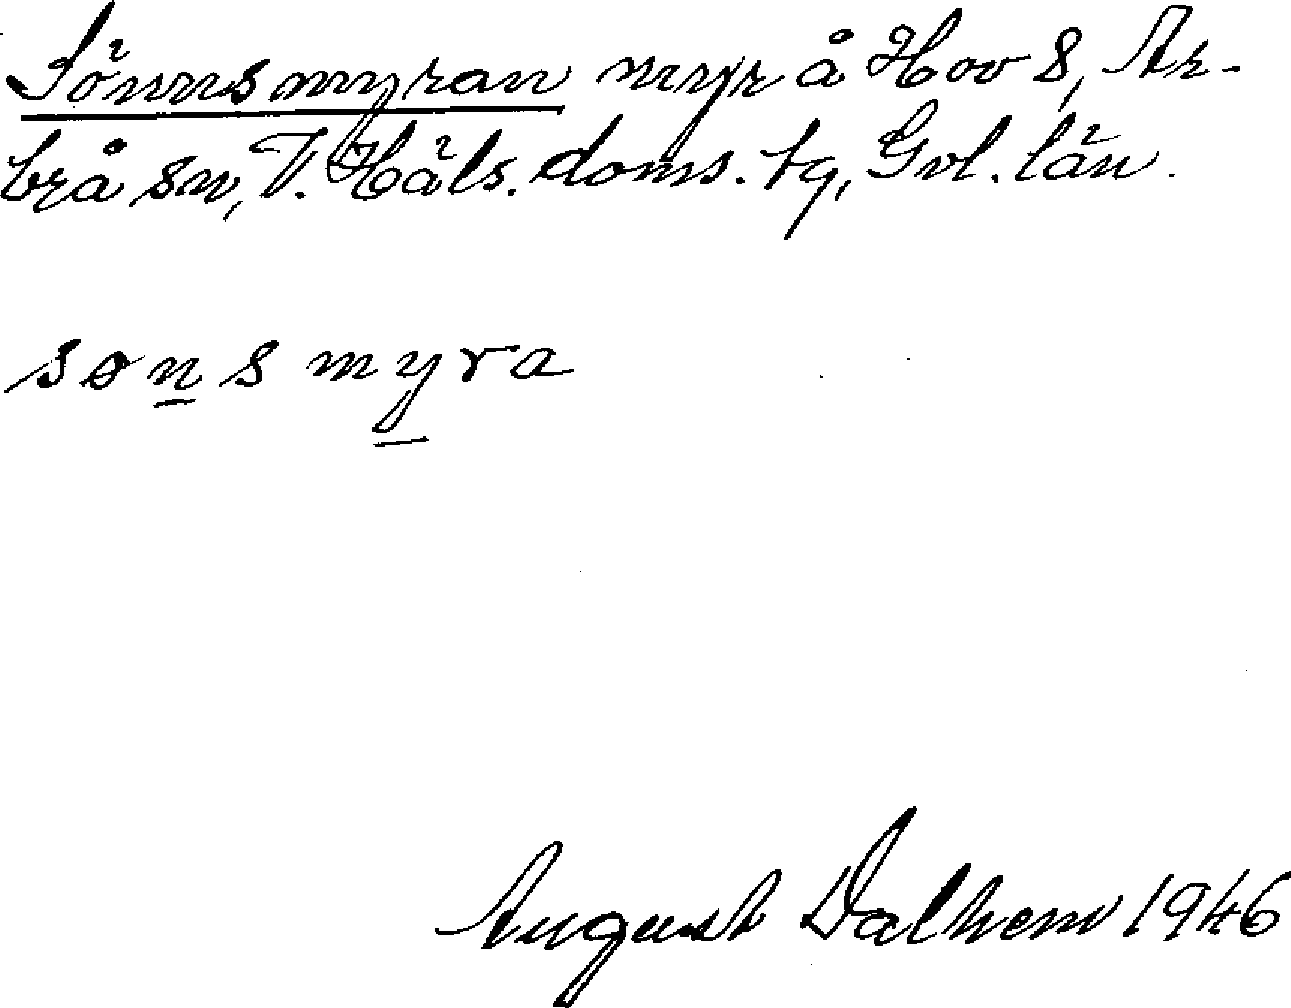 Sönnsmyran myr å Hov 8, Ar-
brå sn, V. Häls. doms. tg, Gvl. län.
sonsmyra
August Dalhem 1946